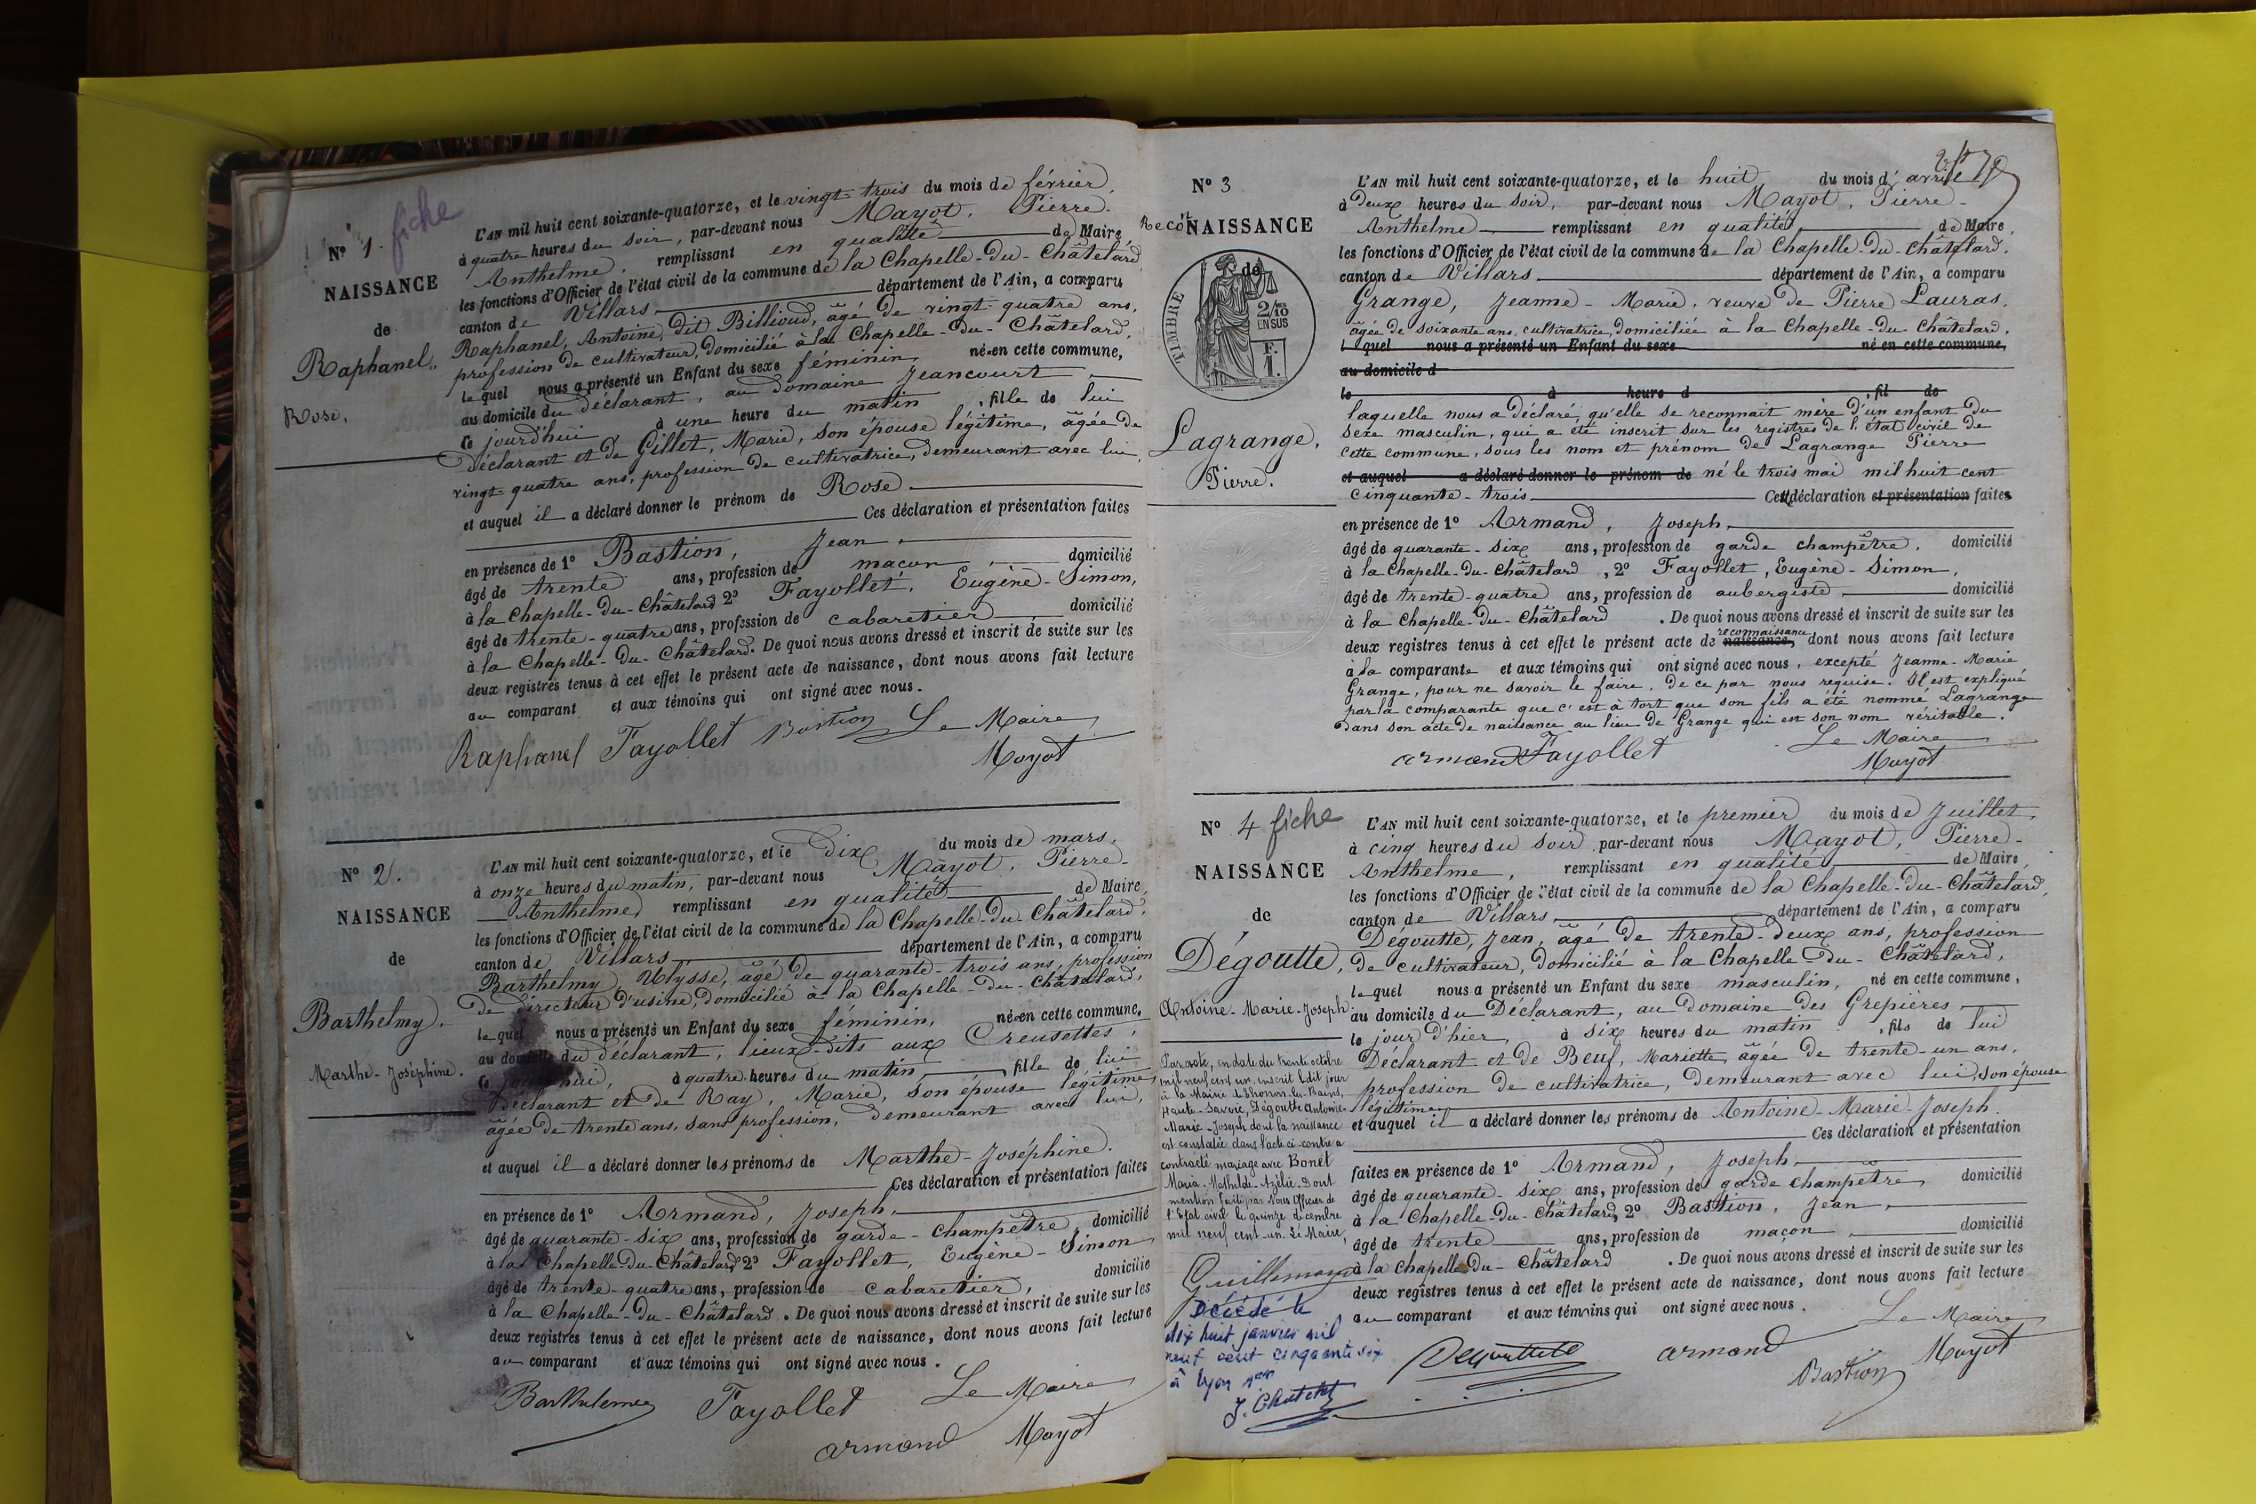 N° 1. fiche
NAISSANCE
de
Raphanel,
Rose.
L'AN mil huit cent soixante-quatorze, et le vingt-trois du mois de février,
à quatre heures du soir, par-devant nous Mayot, Pierre-
Anthelme, remplissant en qualité de Maire
les fonctions d'Officier de l'état civil de la commune de la Chapelle-du-Châtelard,
canton de Villars département de l'Ain, a comparu
Raphanel, Antoine, dit Billioud, âgé de vingt-quatre ans,
profession de cultivateur, domicilié à la Chapelle-du-Châtelard,
lequel nous a présenté un Enfant du sexe féminin, née en cette commune,
au domicile du déclarant, au domaine Jeancourt
ce jourd'hui à une heure du matin, fille de lui
Déclarant et de Gillet, Marie, son épouse légitime, âgée de
vingt-quatre ans, profession de cultivatrice, demeurant avec lui,
et auquel il a déclaré donner le prénom de Rose
Ces déclaration et présentation faites
en présence de 1° Bastion, Jean,
âgé de trente ans, profession de maçon, domicilié
à la Chapelle-du-Châtelard 2° Fayollet, Eugène-Simon,
âgé de trente-quatre ans, profession de cabaretier domicilié
à la Chapelle-du-Châtelard. De quoi nous avons dressé et inscrit de suite sur les
deux registres tenus à cet effet le présent acte de naissance, dont nous avons fait lecture
au comparant et aux témoins qui ont signé avec nous.
Raphanel Fayollet Bastion Le Maire
Mayot
N° 2.
NAISSANCE
de
Barthelmy.
Marthe-Joséphine.
L'AN mil huit cent soixante-quatorze, et le dix du mois de mars,
à onze heures du matin, par-devant nous Mayot, Pierre-
Anthelme, remplissant en qualité de Maire,
les fonctions d'Officier de l'état civil de la commune de la Chapelle-du-Châtelard,
canton de Villars département de l'Ain, a comparu
Barthelmy, Ulysse, âgé de quarante-trois ans, profession
de directeur d'usine, domicilié à la Chapelle-du-Châtelard,
lequel nous a présenté un Enfant du sexe féminin, née en cette commune,
au domicile du déclarant, lieux-dits aux Creusettes,
ce jourd'hui, à quatre heures du matin, fille de lui
déclarant et de Ray, Marie, son épouse légitime
âgée de trente ans, sans profession, demeurant avec lui,
et auquel il a déclaré donner les prénoms de Marthe-Joséphine.
Ces déclaration et présentation faites
en présence de 1° Armand, Joseph,
âgé de quarante-six ans, profession de garde-champêtre, domicilié
à la Chapelle-du-Châtelard 2° Fayollet, Eugène-Simon
âgé de trente-quatre ans, profession de cabaretier, domicilié
à la Chapelle-du-Châtelard. De quoi nous avons dressé et inscrit de suite sur les
deux registres tenus à cet effet le présent acte de naissance, dont nous avons fait lecture
au comparant et aux témoins qui ont signé avec nous.
Barthelemy Fayollet Le Maire
armand Mayot
N° 3
Recon NAISSANCE
de
TIMBRE
2/10
EN SUS
F.
1.
Lagrange,
Pierre.
L'AN mil huit cent soixante-quatorze, et le huit du mois d'avril
à deux heures du soir, par-devant nous Mayot, Pierre-
Anthelme remplissant en qualité de Maire,
les fonctions d'Officier de l'état civil de la commune de la Chapelle-du-Châtelard,
canton de Villars département de l'Ain, a comparu
Grange, Jeanne-Marie, veuve de Pierre Lauras,
âgée de soixante ans, cultivatrice, domiciliée à la Chapelle-du-Châtelard,
lequel nous a présenté un Enfant du sexe né en cette commune,
au domicile d
le à heure d , fil de
laquelle nous a déclaré qu'elle se reconnait mère d'un enfant du
sexe masculin, qui a été inscrit sur les registres de l'état civil de
cette commune, sous les nom et prénom de Lagrange Pierre
et auquel a déclaré donner le prénom de né le trois mai mil huit cent
cinquante-trois Cette déclaration et présentation faites
en présence de 1° Armand, Joseph,
âgé de quarante-six ans, profession de garde champêtre, domicilié
à la Chapelle-du-Châtelard, 2° Fayollet, Eugène-Simon,
âgé de trente-quatre ans, profession de aubergiste, domicilié
à la Chapelle-du-Châtelard. De quoi nous avons dressé et inscrit de suite sur les
reconnaissance
deux registres tenus à cet effet le présent acte de naissance, dont nous avons fait lecture
à la comparante et aux témoins qui ont signé avec nous, excepté Jeanne-Marie
Grange, pour ne savoir le faire, de ce par nous requise. Il est expliqué
par la comparante que c'est à tort que son fils a été nommé Lagrange
dans son acte de naissance au lieu de Grange qui est son nom véritable.
armand Fayollet Le Maire
Mayot
N° 4 fiche
NAISSANCE
de
Dégoutte,
Antoine-Marie-Joseph.
Par acte, en date du trente octobre
mil neuf cent un, inscrit ledit jour
à la Mairie de Thonon-les-Bains,
Haute-Savoie, Dégoutte Antoine-
Marie-Joseph dont la naissance
est constatée dans l'acte ci-contre a
contracté mariage avec Bonet
Maria-Mathilde-Azélie. Dont
mention faite par Nous Officier de
l'Etat civil le quinze décembre
mil neuf cent un. Le Maire,
Guillemin
Décédé le
dix huit janvier mil
neuf cent cinquante six
à Lyon
L'AN mil huit cent soixante-quatorze, et le premier du mois de Juillet,
à cinq heures du soir par-devant nous Mayot, Pierre-
Anthelme, remplissant en qualité de Maire
les fonctions d'Officier de l'état civil de la commune de la Chapelle-du-Châtelard,
canton de Villars département de l'Ain, a comparu
Dégoutte, Jean, âgé de trente-deux ans, profession
de cultivateur, domicilié à la Chapelle du-Châtelard,
lequel nous a présenté un Enfant du sexe masculin, né en cette commune,
au domicile du Déclarant, au domaine des Grepières
le jour d'hier, à six heures du matin, fils de lui
Déclarant et de Beuf, Mariette, âgée de trente-un ans,
profession de cultivatrice, demeurant avec lui, son épouse
légitime
et auquel il a déclaré donner les prénoms de Antoine-Marie-Joseph.
Ces déclaration et présentation
faites en présence de 1° Armand, Joseph,
âgé de quarante-six ans, profession de garde champêtre, domicilié
à la Chapelle-du-Châtelard, 2° Bastion, Jean,
âgé de trente ans, profession de maçon, domicilié
à la Chapelle-du-Châtelard. De quoi nous avons dressé et inscrit de suite sur les
deux registres tenus à cet effet le présent acte de naissance, dont nous avons fait lecture
au comparant et aux témoins qui ont signé avec nous.
Degouttite armand Le Maire
Bastion Mayot